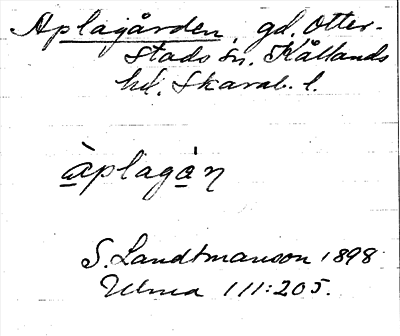 Aplagården, gd, Otter-
stads sn. Kållands
hd. Skarab. l.
àplagàṇ
S. Landtmanson 1898
Ulma 111:205.